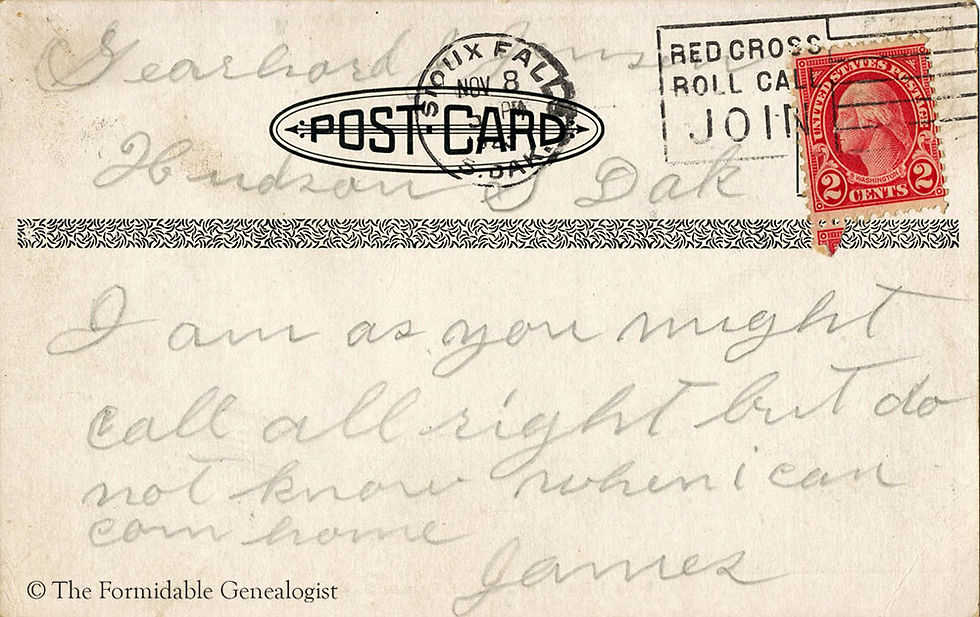 Gearhord
SIOUX FALLS
NOV 8
S. DAK.
RED CROSS
ROLL CALL
JOIN
UNITED STATES POSTAGE
WASHINGTON
2 CENTS 2
POST CARD
Hudson S Dak
I am as you might
call all right but do
not know when i can
com home
James
© The Formidable Genealogist